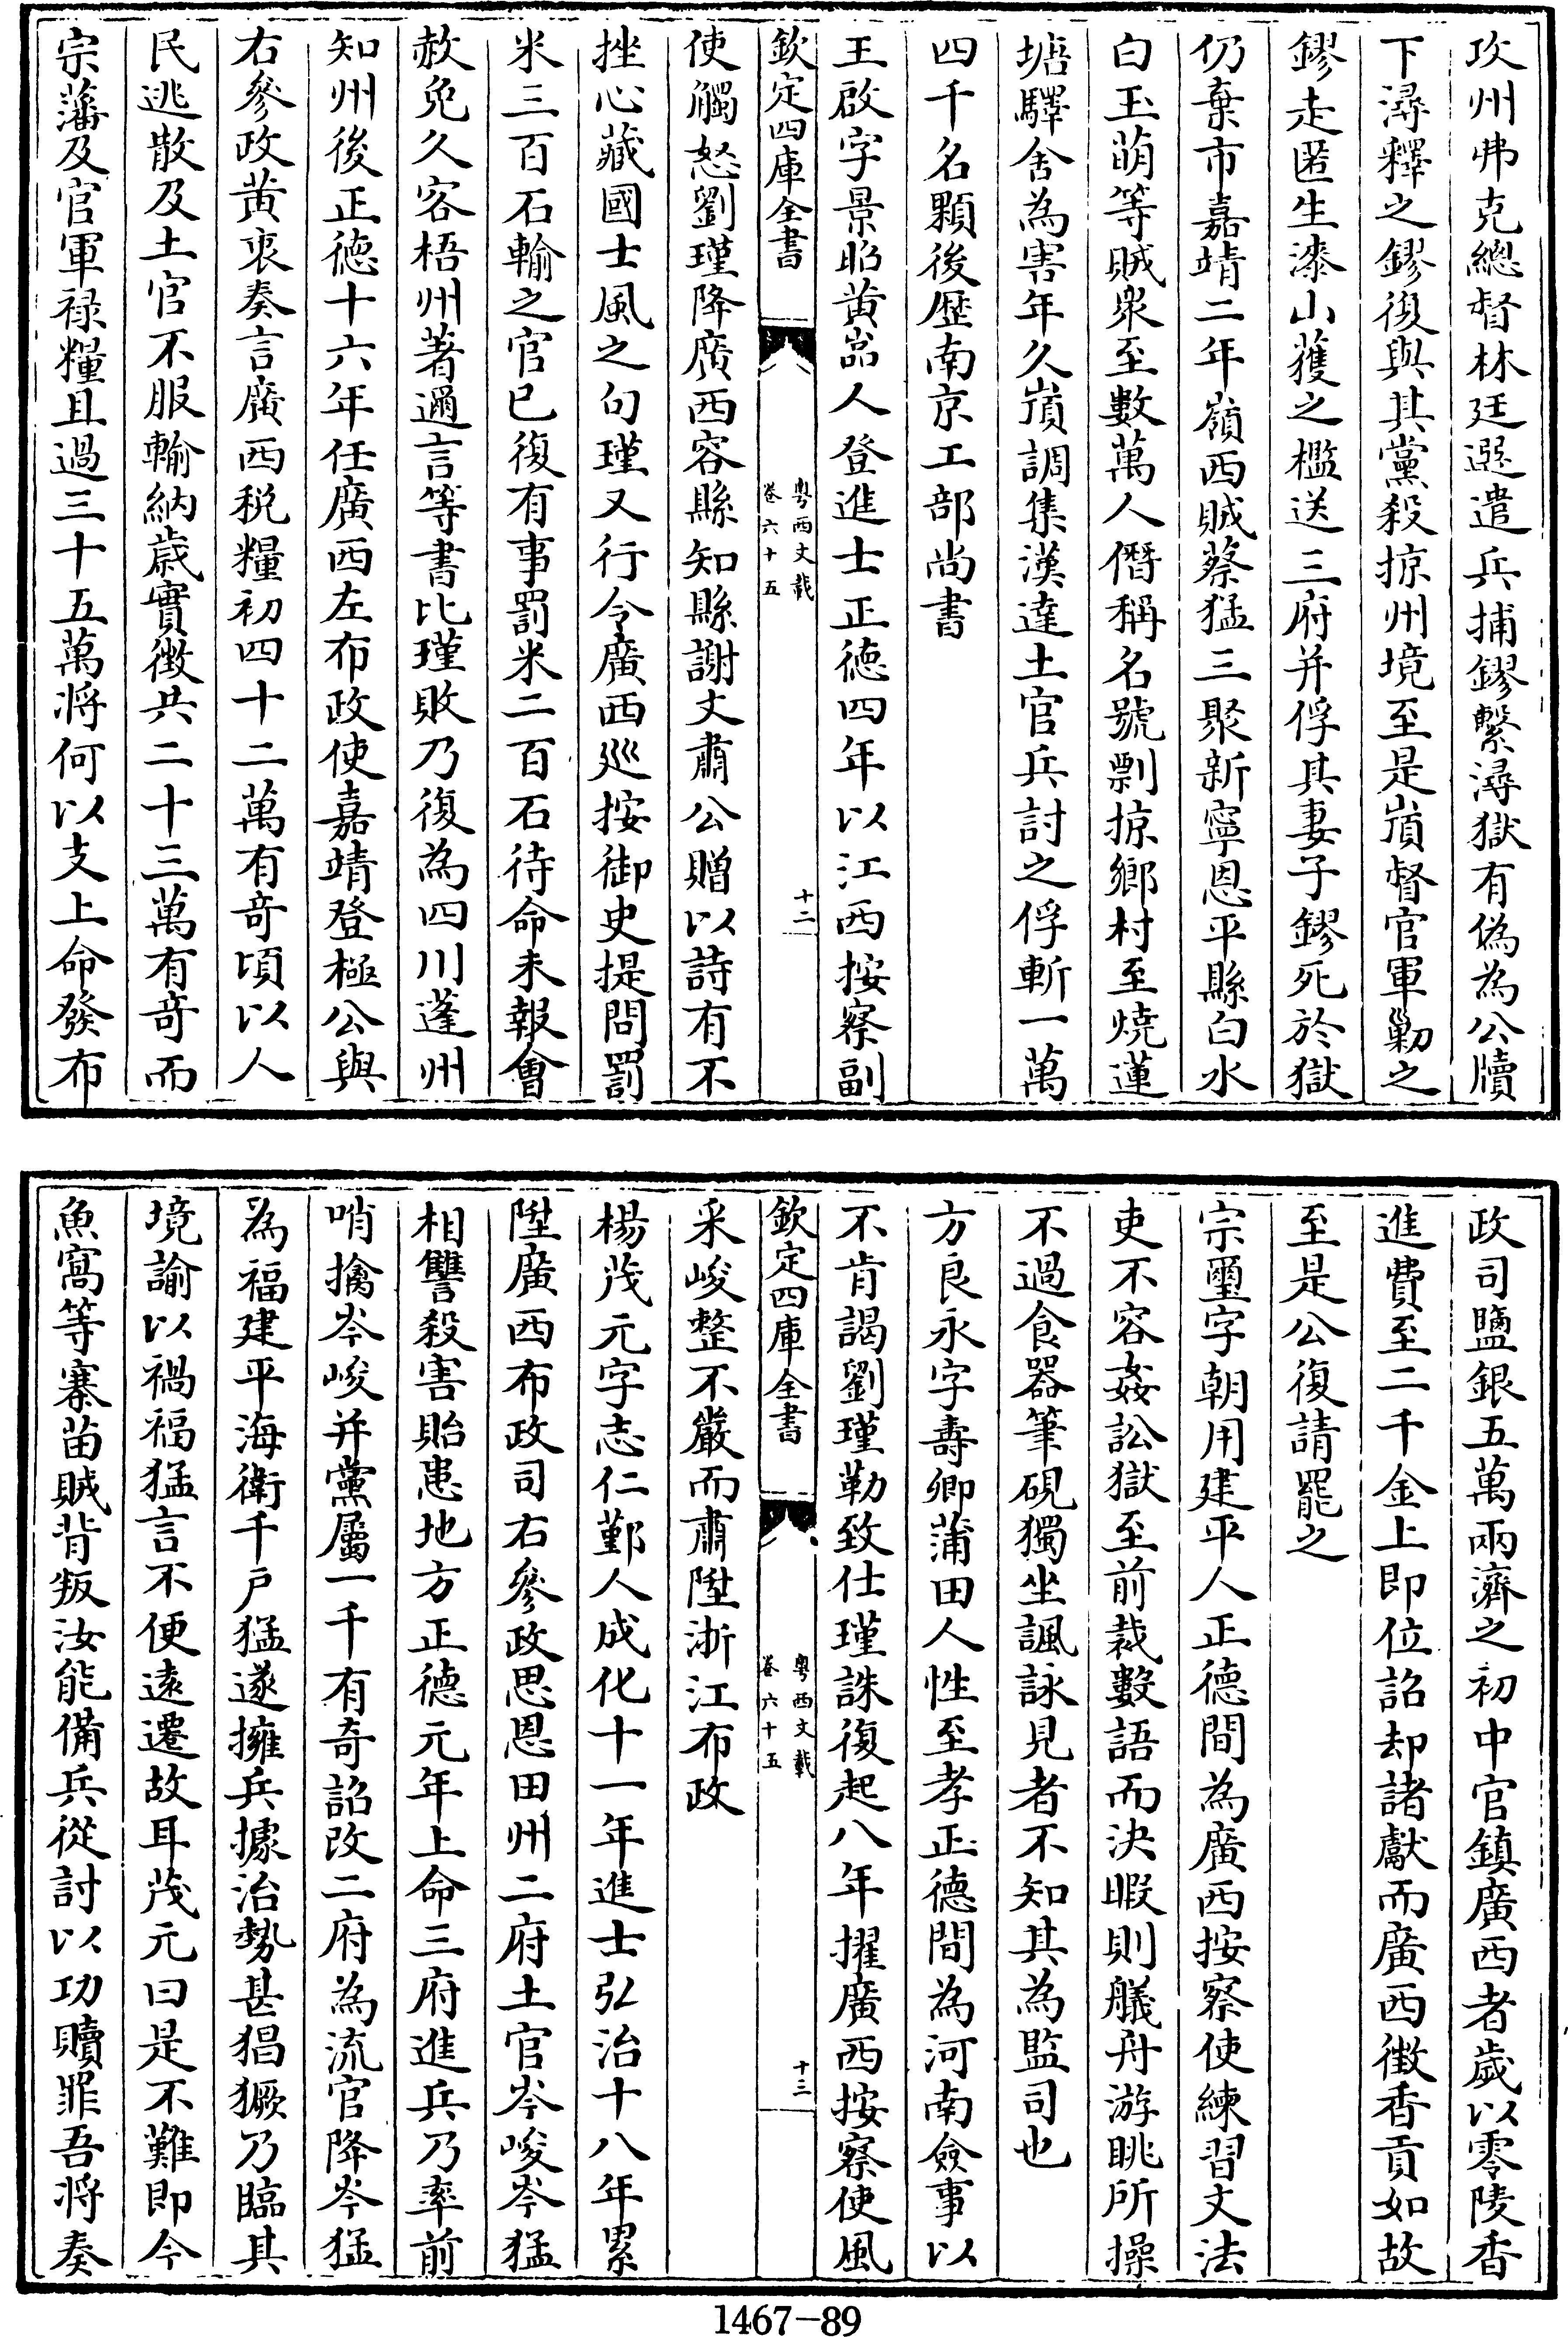 攻州弗克總督林廷選遣兵捕鏐繫潯獄有偽為公牘
下潯釋之鏐復與其黨殺掠州境至是嵿督官軍勦之
鏐走匿生漆山獲之檻送三府并俘其妻子鏐死於獄
仍棄市嘉靖二年嶺西賊蔡猛三聚新寧恩平縣白水
白玉萌等賊衆至數萬人僭稱名號剽掠鄉村至燒蓮
塘驛舍為害年久嵿調集漢達土官兵討之俘斬一萬
四千名顆後歴南京工部尚書
王啟字景昭黄嵓人登進士正德四年以江西按察副
欽定四庫全書
粤西文載
卷六十五
十二
使觸怒劉瑾降廣西容縣知縣謝文肅公贈以詩有不
挫心藏國士風之句瑾又行令廣西廵按御史提問罰
米三百石輸之官已復有事罰米二百石待命未報會
赦免久客梧州著邇言等書比瑾敗乃復為四川蓬州
知州後正德十六年任廣西左布政使嘉靖登極公與
右參政黄衷奏言廣西税糧初四十二萬有奇頃以人
民逃散及土官不服輸納歳實徴共二十三萬有奇而
宗藩及官軍禄糧且過三十五萬將何以支上命發布
政司鹽銀五萬兩濟之初中官鎮廣西者歲以零陵香
進費至二千金上即位詔却諸獻而廣西徴香貢如故
至是公復請罷之
宗璽字朝用建平人正德間為廣西按察使練習文法
吏不容姦訟獄至前裁數語而決暇則艤舟游眺所操
不過食器筆硯獨坐諷詠見者不知其為監司也
方良永字壽卿蒲田人性至孝正德間為河南僉事以
不肯謁劉瑾勒致仕瑾誅復起八年擢廣西按察使風
欽定四庫全書
粤西文載
卷六十五
十三
采峻整不嚴而肅陞浙江布政
楊茂元字志仁鄞人成化十一年進士弘治十八年累
陞廣西布政司右參政思恩田州二府土官岑峻岑猛
相讐殺害貽患地方正德元年上命三府進兵乃率前
哨擒岑峻并黨屬一千有奇詔改二府為流官降岑猛
為福建平海衛千戶猛遂擁兵據治勢甚猖獗乃臨其
境諭以禍福猛言不便遠遷故耳茂元曰是不難即今
魚窩等寨苗賊背叛汝能備兵從討以功贖罪吾將奏
1467-89